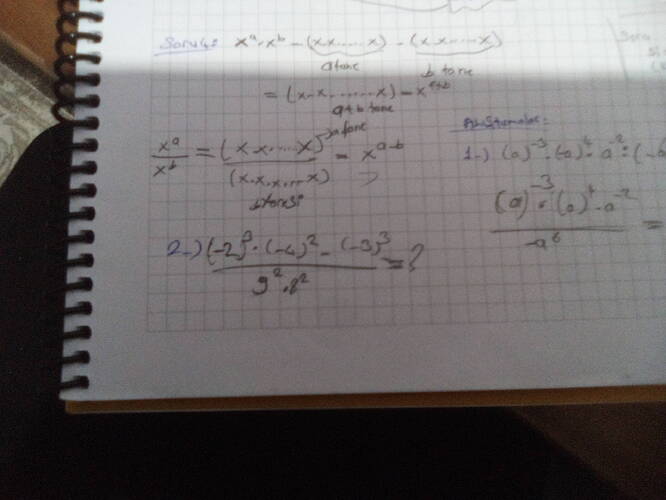 Soru 4: xᵃ.xᵇ = (x.x.....x) . (x.x......x)
a tane b tane
= (x.x.......x) = xᵃ⁺ᵇ
a+b tane
xᵃ/xᵇ = (x.x.....x) a tane / (x.x.x....x) b tanesi = xᵃ⁻ᵇ
2-) (-2)³.(-4)²-(-3)³ / 9².8² = ?
Alıştırmalar:
1-) (a)⁻³.(-a)⁴.a⁻²:(-a
(a)⁻³.(a)⁴.a⁻² / -a⁶ =
Soru